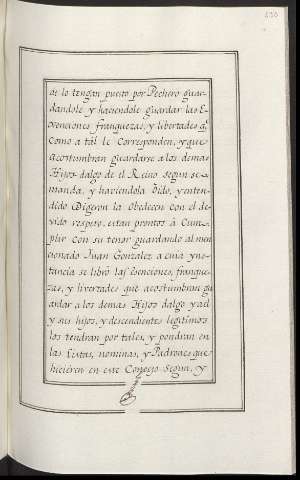 de lo tengan puesto por Pechero guar-
dandole y haciendole guardar las E-
xenciones franquezas, y libertades q.
Como a tál le Corresponden, y que
acostumbran guardarse a los demas
Hijos dalgo de el Reino segun se
manda, y haviendola Oido, y enten-
dido Digeron la Obedecen con el de-
vido respeto, estan prontos à Cum-
plir con su tenor guardando al men-
cionado Juan Gonzalez a cuia yns-
tancia se libró las esenciones, franque-
zas, y libertades que acostumbran gu
ardar a los demas Hijos dalgo y a el
y sus hijos, y descendientes legitimos
los tendran por tales, y pondran en
las Listas, nominas, y Padrones que
hicieren en este Conejo Segun, y